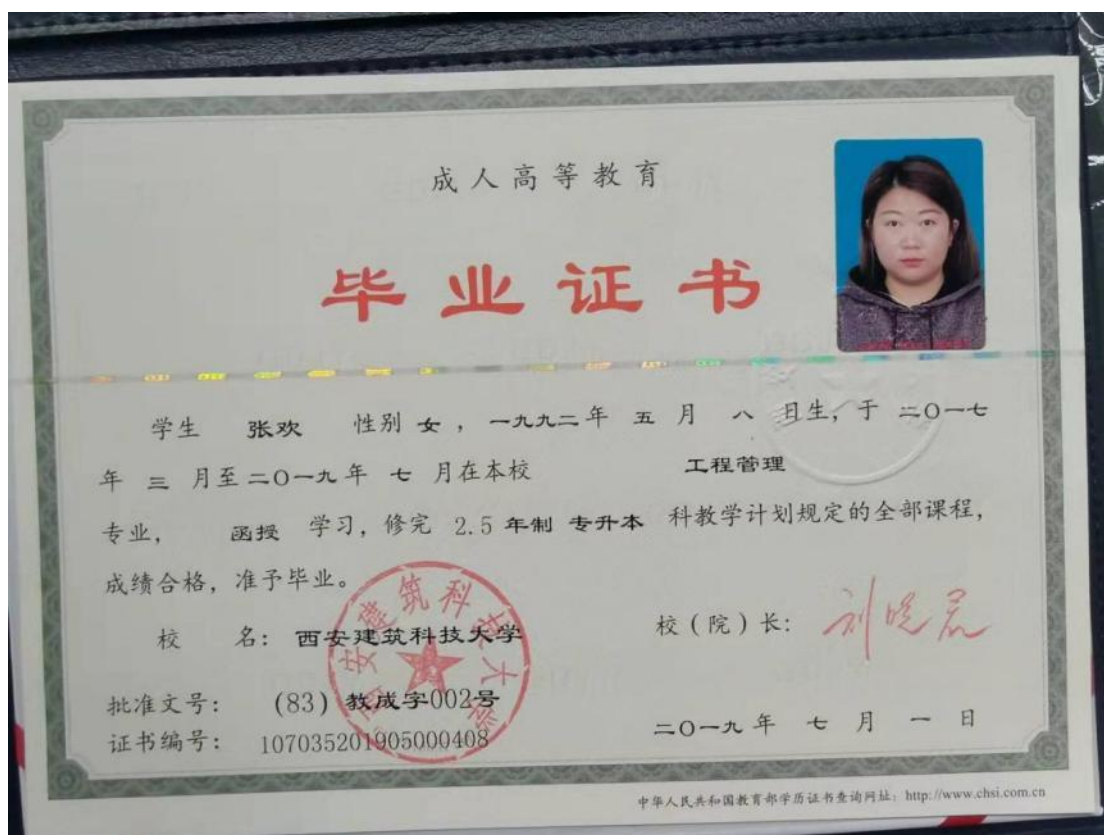 成人高等教育
毕业证书
学生 张欢 性别 女 ， 一九九二 年 五 月 八 日生，于 二〇一七
年 三 月至 二〇一九 年 七 月在本校 工程管理
专业， 函授 学习，修完 2.5 年制 专升本 科教学计划规定的全部课程，
成绩合格，准予毕业。
校 名： 西安建筑科技大学
校（院）长： 刘晓君
西安建筑科技大学
批准文号： (83) 教成字002号
证书编号： 107035201905000408
二〇一九 年 七 月 一 日
中华人民共和国教育部学历证书查询网址：http://www.chsi.com.cn